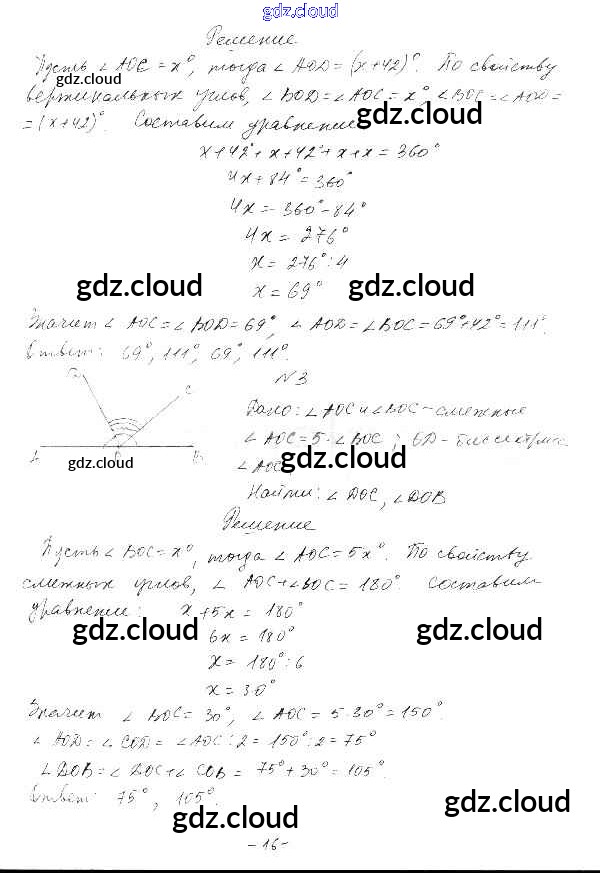 gdz.cloud
Решение
Пусть ∠AOC = x°, тогда ∠AOD = (x+42)°. По свойству
gdz.cloud
вертикальных углов, ∠BOD = ∠AOC = x°, ∠BOC = ∠AOD =
= (x+42)°. Составим уравнение
gdz.cloud
x+42°+x+42°+x+x=360°
4x+84°=360°
4x=360°-84°
4x=276°
x=276°:4
x=69°
gdz.cloud gdz.cloud
Значит ∠AOC=∠BOD=69°, ∠AOD=∠BOC=69°+42°=111°.
Ответ: 69°, 111°, 69°, 111°.
N3
C
Дано: ∠AOC и ∠BOC – смежные
∠AOC=5·∠BOC; OD – биссектриса
A B
gdz.cloud gdz.cloud
∠AOC
Найти: ∠DOC, ∠DOB
Решение
Пусть ∠BOC=x°, тогда ∠AOC=5x°. По свойству
смежных углов, ∠AOC+∠BOC=180°. Составим
уравнение: x+5x=180°
gdz.cloud gdz.cloud
6x=180°
x=180°:6
x=30°
Значит ∠BOC=30°, ∠AOC=5·30°=150°.
∠AOD=∠COD=∠AOC:2=150°:2=75°
∠DOB=∠DOC+∠COB=75°+30°=105°.
Ответ: 75°, 105°.
gdz.cloud gdz.cloud
-16-